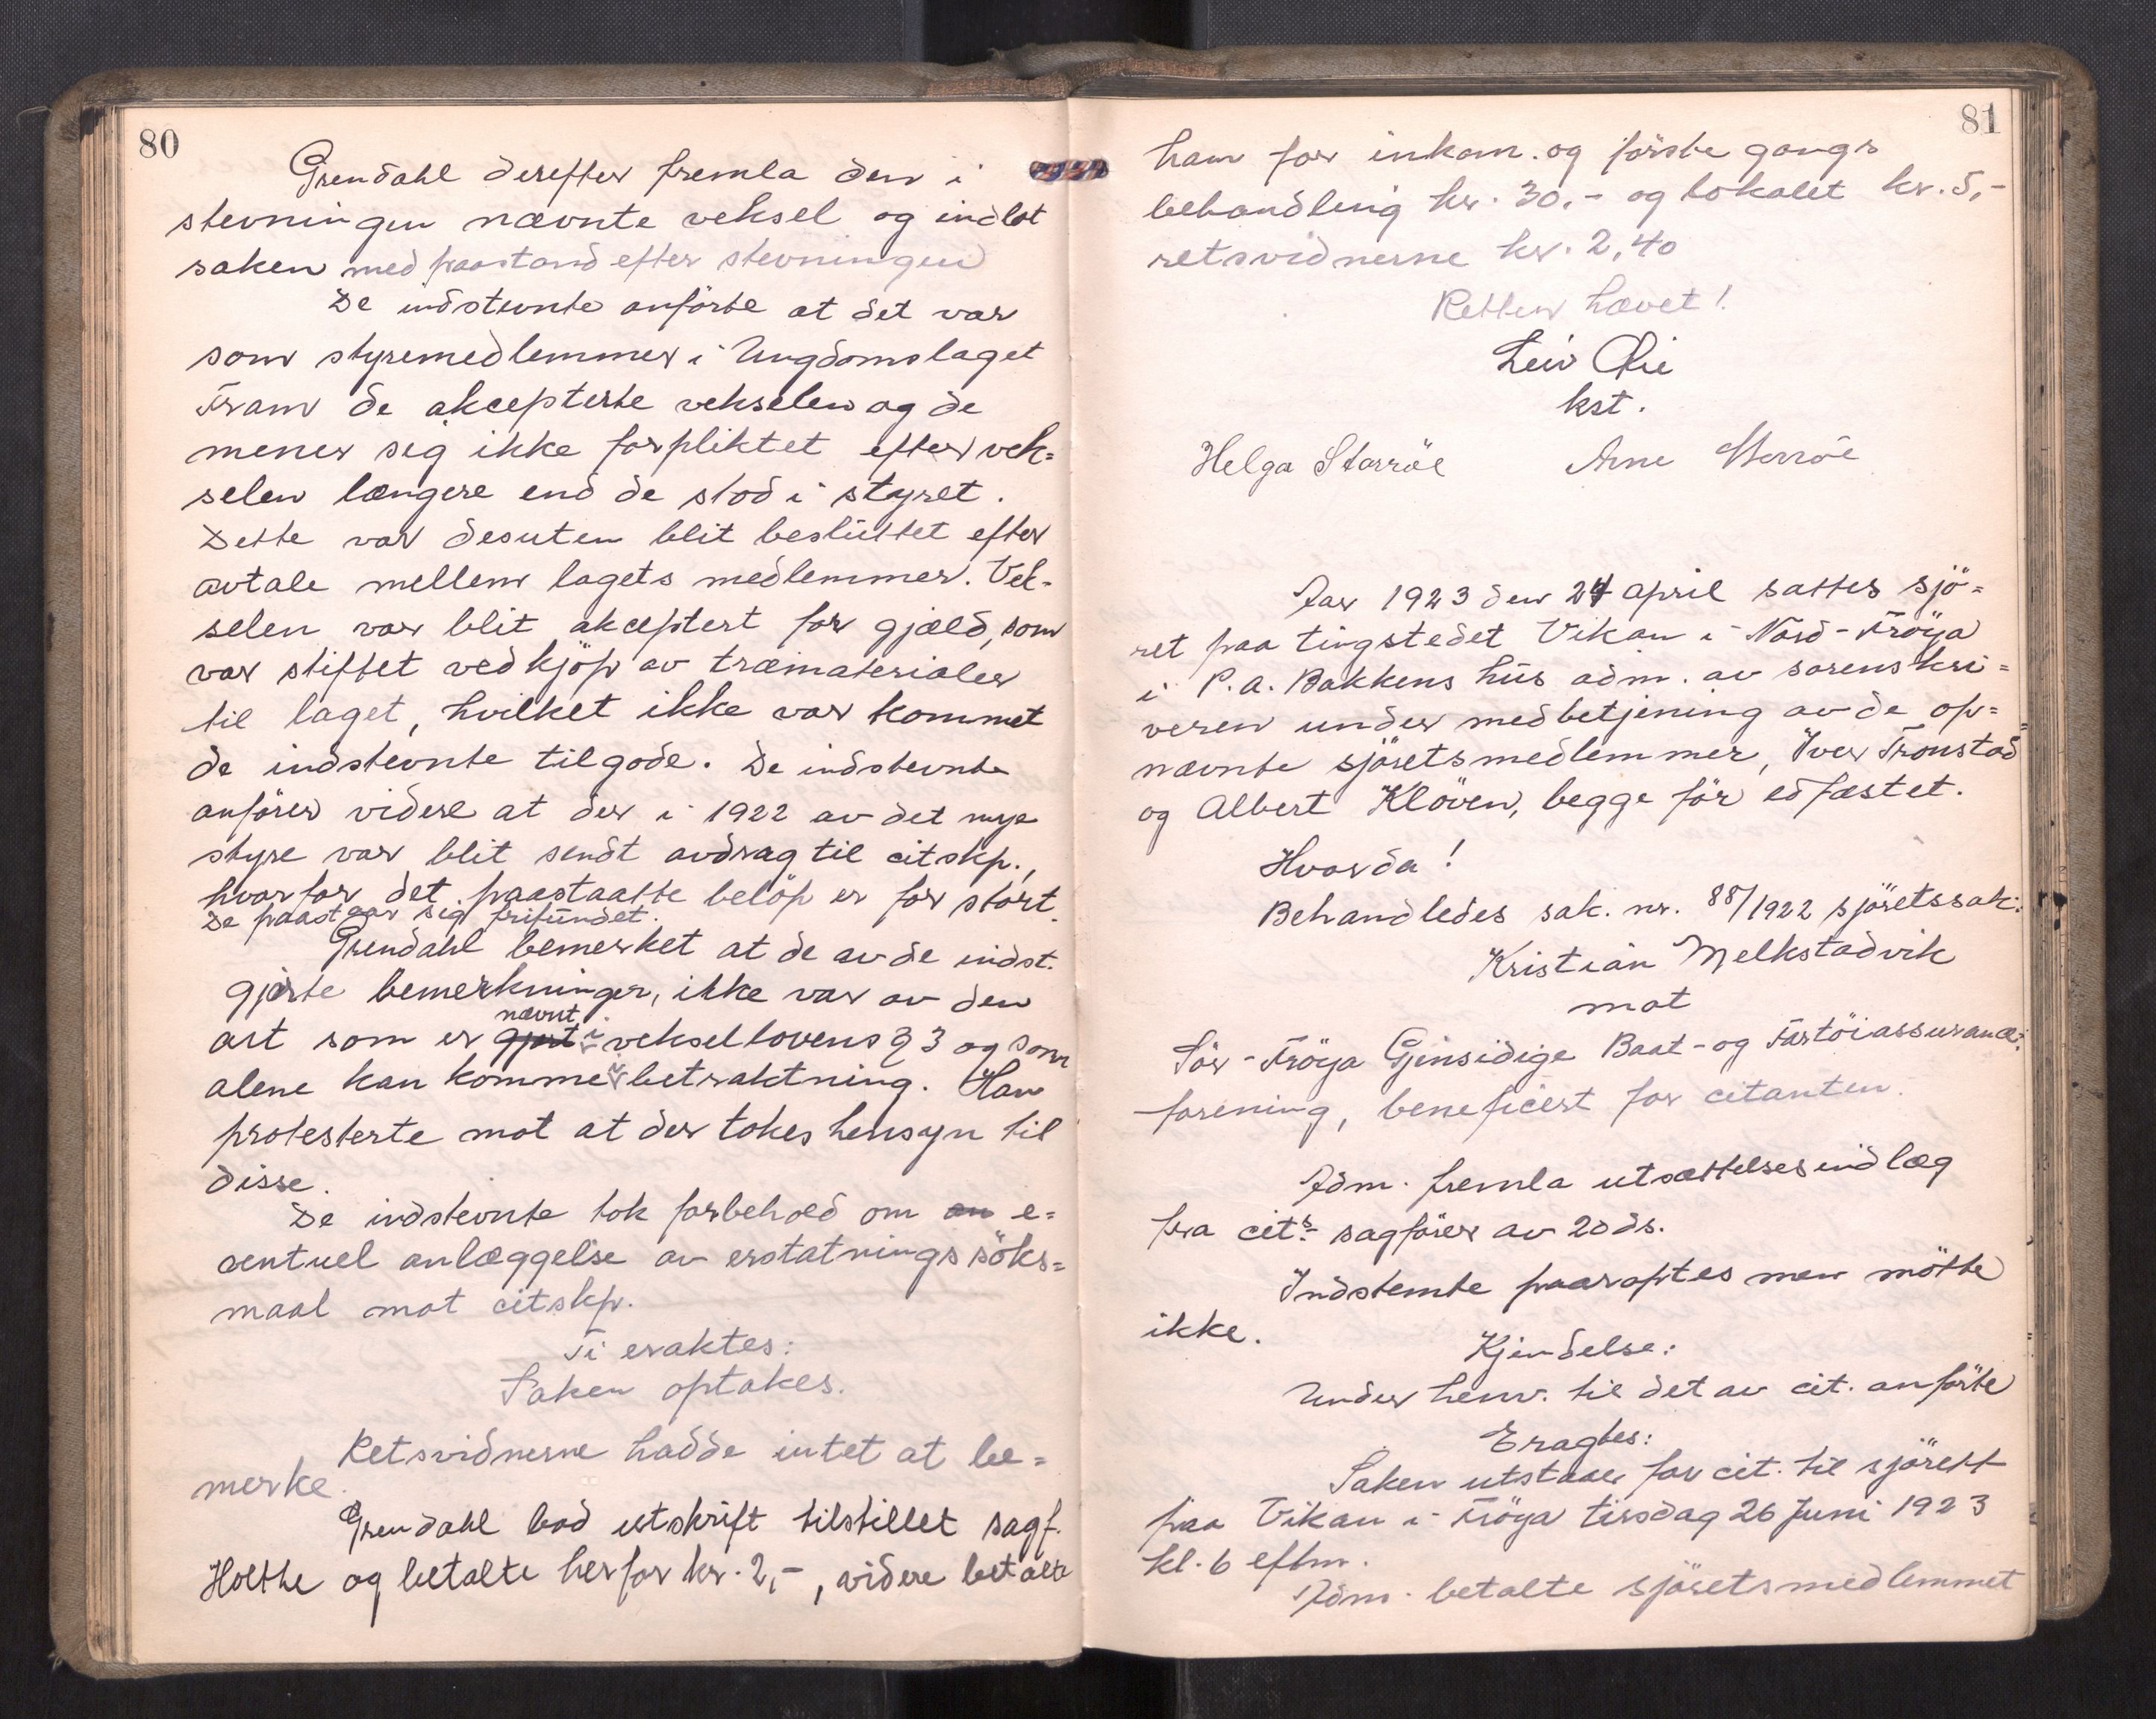 80
Grendahl derefter fremla den i
stevningen nævnte veksel og indlot
saken med paastand efter stevningen
De indstevnte anförte at det var
som styremedlemmer i Ungdomslaget
Fram de akcepterte vekselen og de
mener sig ikke forpliktet efter vek=
selen længere end de stod i styret.
Dette var desuten blit besluttet efter
avtale mellem lagets medlemmer. Vek-
selen var blit akceptert for gjæld, som
var stiftet ved kjöp av træmaterialer
til laget, hvilket ikke var kommet
de indstevnte tilgode. De indstevnte
anförer videre at der i 1922 av det nye
styre var blit sendt avdrag til citskp.,
hvorfor det paastaatte belöp er for stort.
De paastaar sig frifundet.
Grendahl bemerket at de av de indst.
gjorte bemerkninger, ikke var av den
nævnt
art som er gjort i veksellovens § 3 og som
alene kan komme i betraktning. Han
protesterte mot at der tokes hensyn til
disse.
De indstevnte tok forbehold om an e=
ventuel anlæggelse av erstatningssöks=
maal mot citskp.
Ti eraktes:
Saken optakes.
Retsvidnerne hadde intet at be=
merke.
Grendahl bad utskrift tilstillet sagf.
Holthe og betalte herfor kr. 2,-, videre betalte
81
ham for inkam. og förste gangs
behandling kr. 30.- og lokalet kr. 5,-
retsvidnerne kr. 2,40
Retten hævet!
Leiv Lie
kst.
Helga Storröe Arne Storröe
Aar 1923 den 24 april sattes sjö=
ret paa tingstedet Vikan i Nord-Fröya
i P.A. Bakkens hus adm. av sorenskri=
veren under medbetjening av de op=
nævnte sjöretsmedlemmer, Iver Tronstad
og Albert Klöven, begge för edfæstet.
Hvorda!
Behandledes sak. nr. 88/1922 sjöretssak:
Kristian Melkstadvik
mot
Sör-Fröya Gjensidige Baat- og Fartöiassurance=
forening, beneficert for citanten.
Adm. fremla utsættelsesindlæg
fra cits sagförer av 20 ds.
Indstemte paaroptes men mötte
ikke.
Kjendelse:
Under henv. til det av cit. anförte
Eragtes:
Saken utstaar for cit. til sjörett
paa Vikan i Fröya tirsdag 26 Juni 1923
kl. 6 eftm.
Adm. betalte sjöretsmedlemmet